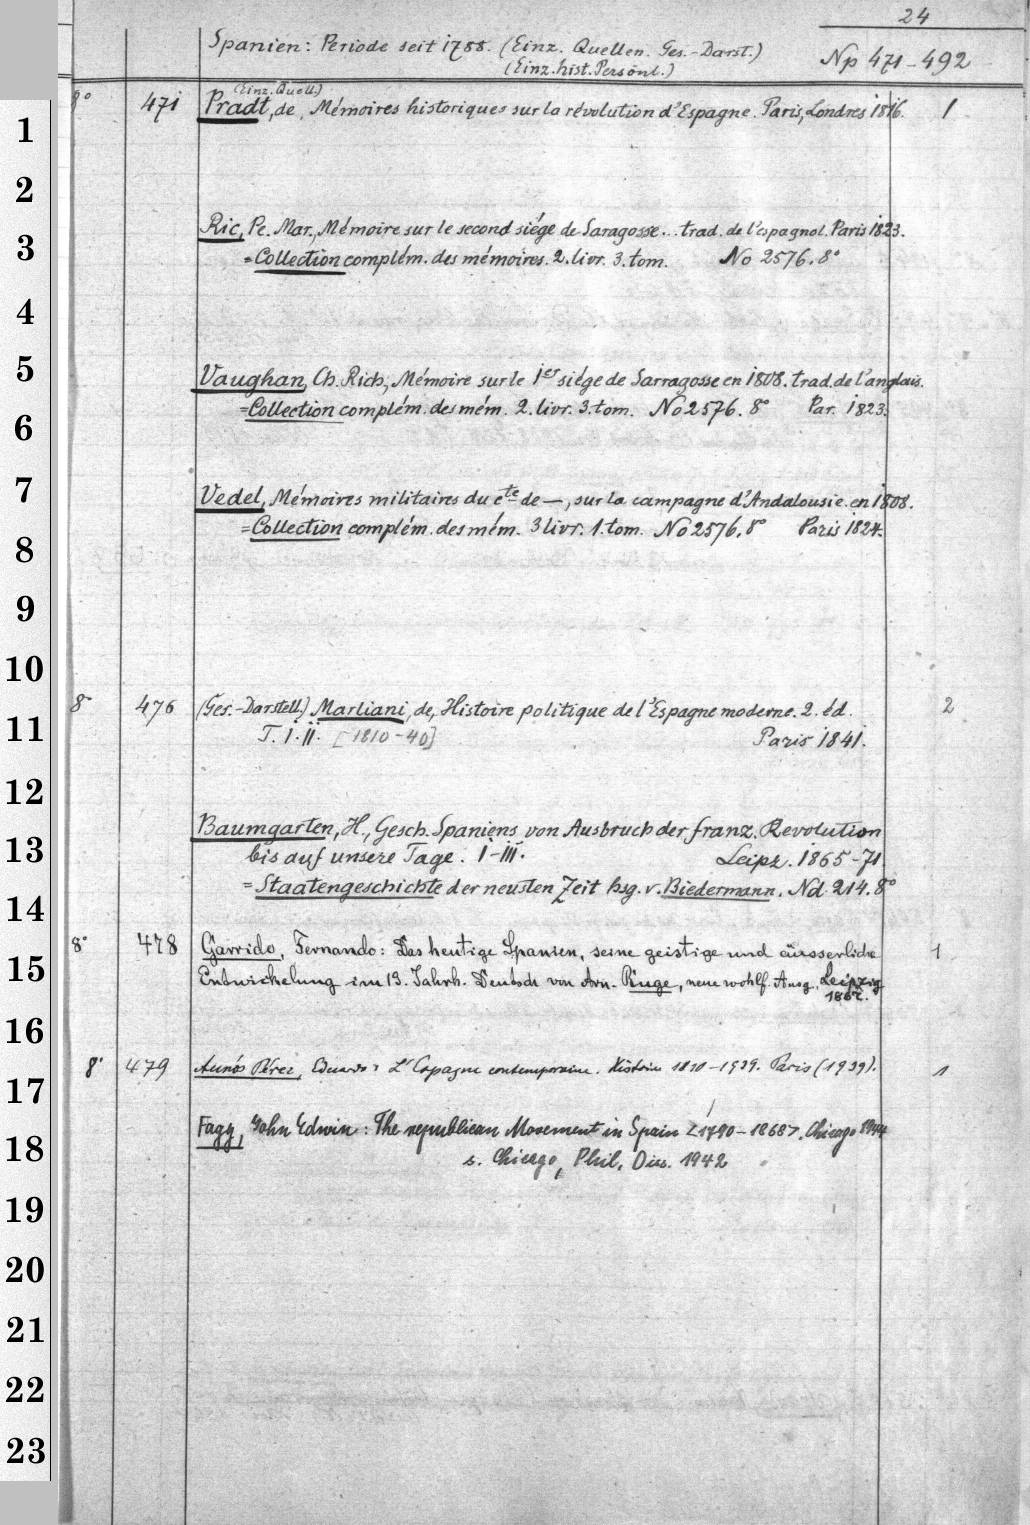 24
Spanien: Periode seit 1788. (Einz. Quellen. Ges.-Darst.)
(Einz. hist. Persönl.)
Np 471-492
(Einz. Quell.)
8° 471 Pradt, de, Mémoires historiques sur la révolution d'Espagne. Paris, Londres 1816. 1
1
2
Ric, Pe. Mar., Mémoire sur le second siége de Saragosse... trad. de l'espagnol. Paris 1823.
3
= Collection complém. des mémoires. 2. livr. 3. tom. No 2576. 8°
4
5
Vaughan, Ch. Rich., Mémoire sur le 1er siége de Sarragosse en 1808. trad. de l'anglais.
= Collection complém. des mém. 2. livr. 3. tom. No 2576. 8° Par. 1823.
6
7
Vedel, Mémoires militaires du cte de —, sur la campagne d'Andalousie en 1808.
= Collection complém. des mém. 3 livr. 1. tom. No 2576. 8° Paris 1824.
8
9
10
8° 476 (Ges.-Darstell.) Marliani, de, Histoire politique de l'Espagne moderne. 2. éd. 2
11
T. I. II. [1810-40] Paris 1841.
12
Baumgarten, H., Gesch. Spaniens von Ausbruch der franz. Revolution
13
bis auf unsere Tage. I-III. Leipz. 1865-71.
= Staatengeschichte der neusten Zeit hsg. v. Biedermann. Nd. 214. 8°
14
8° 478 Garrido, Fernando: Das heutige Spanien, seine geistige und äusserliche 1
15
Entwickelung im 19. Jahrh. Deutsch von Arn. Ruge, neue wohlf. Ausg. Leipzig
1867.
16
8° 479 Aunós Pérez, Eduardo: L'Espagne contemporaine. Histoire 1810-1939. Paris (1939). 1
17
Fagg, John Edwin: The republican Movement in Spain <1790-1868>. Chicago 1944
18
s. Chicago, Phil. Diss. 1942
19
20
21
22
23